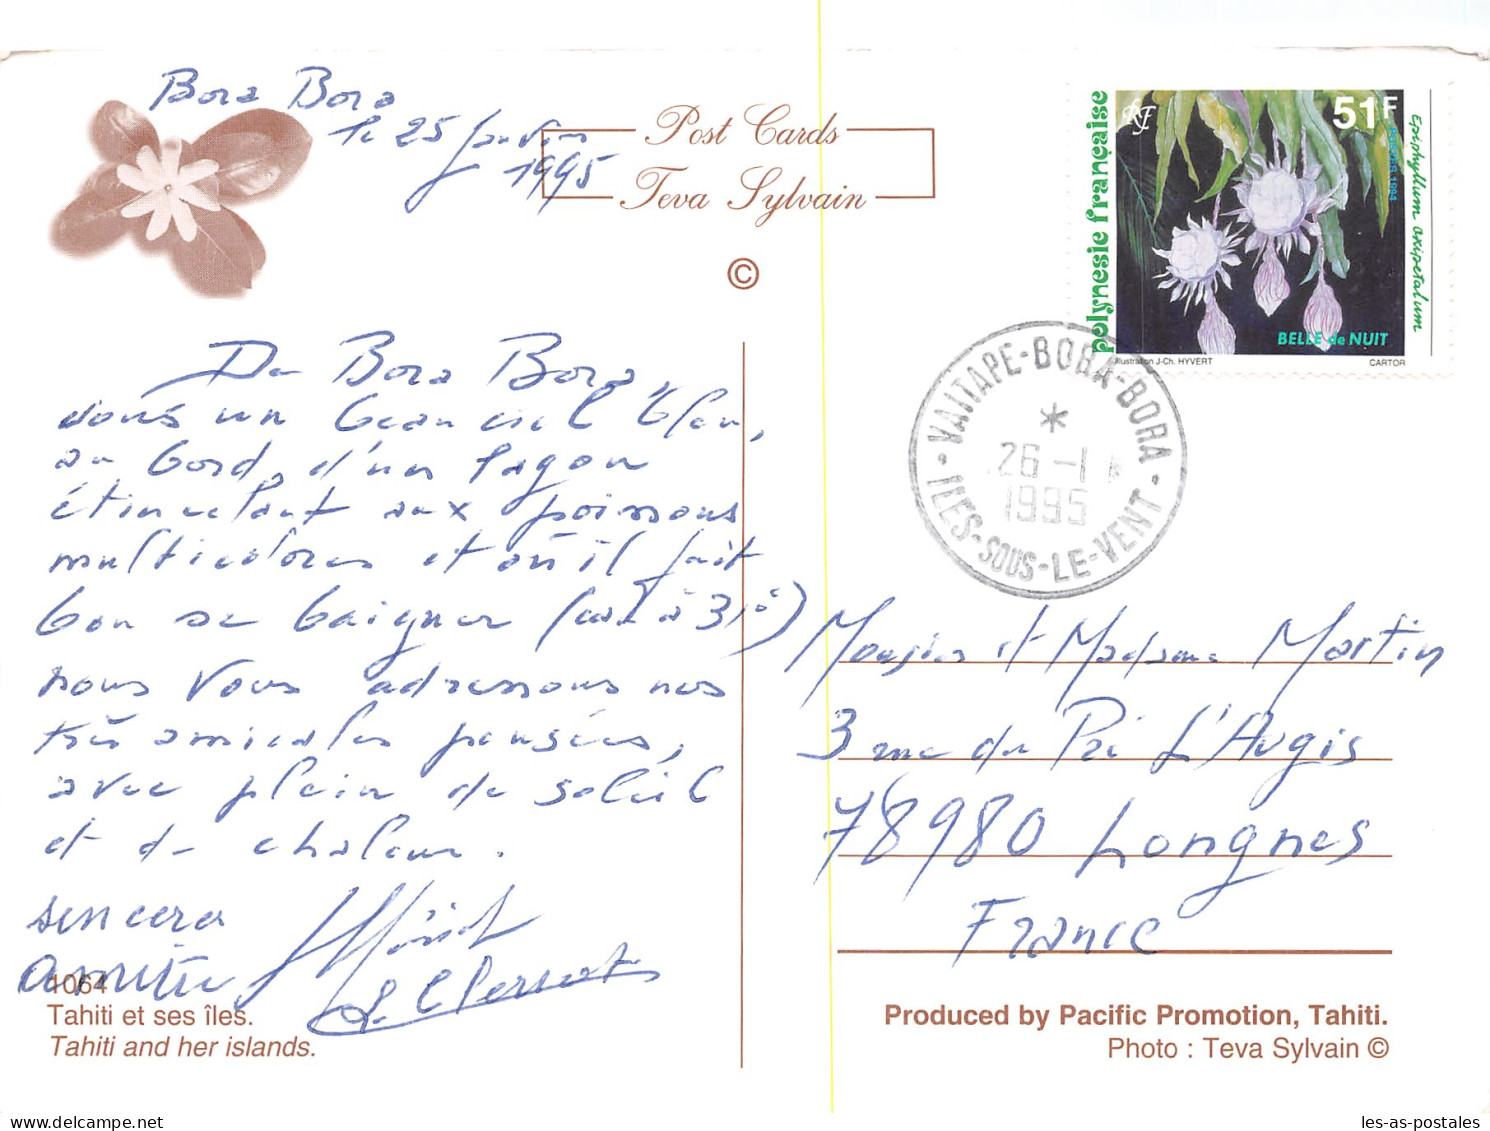 Bora Bora
le 25 Janvier
1995
Post Cards
Teva Sylvain
©
polynésie française
RF
51F
Epiphyllum oxipetalum
BELLE de NUIT
Illustration J-Ch. HYVERT
CARTOR
VAITAPE-BORA-BORA
26 -1
1995
ILES-SOUS-LE-VENT
De Bora Bora,
dans un beau ciel bleu,
au bord d'un lagon
étincelant aux poissons
multicolores et où il fait
bon se baigner (eau à 31°)
nous vous adressons nos
très amicales pensées,
avec plein de soleil
et de chaleur.
sincère
amitié
Monsieur et Madame Martin
3 rue du Pré L'Augis
78980 Longnes
France
1064
Tahiti et ses îles.
Tahiti and her islands.
Produced by Pacific Promotion, Tahiti.
Photo : Teva Sylvain ©
les-as-postales